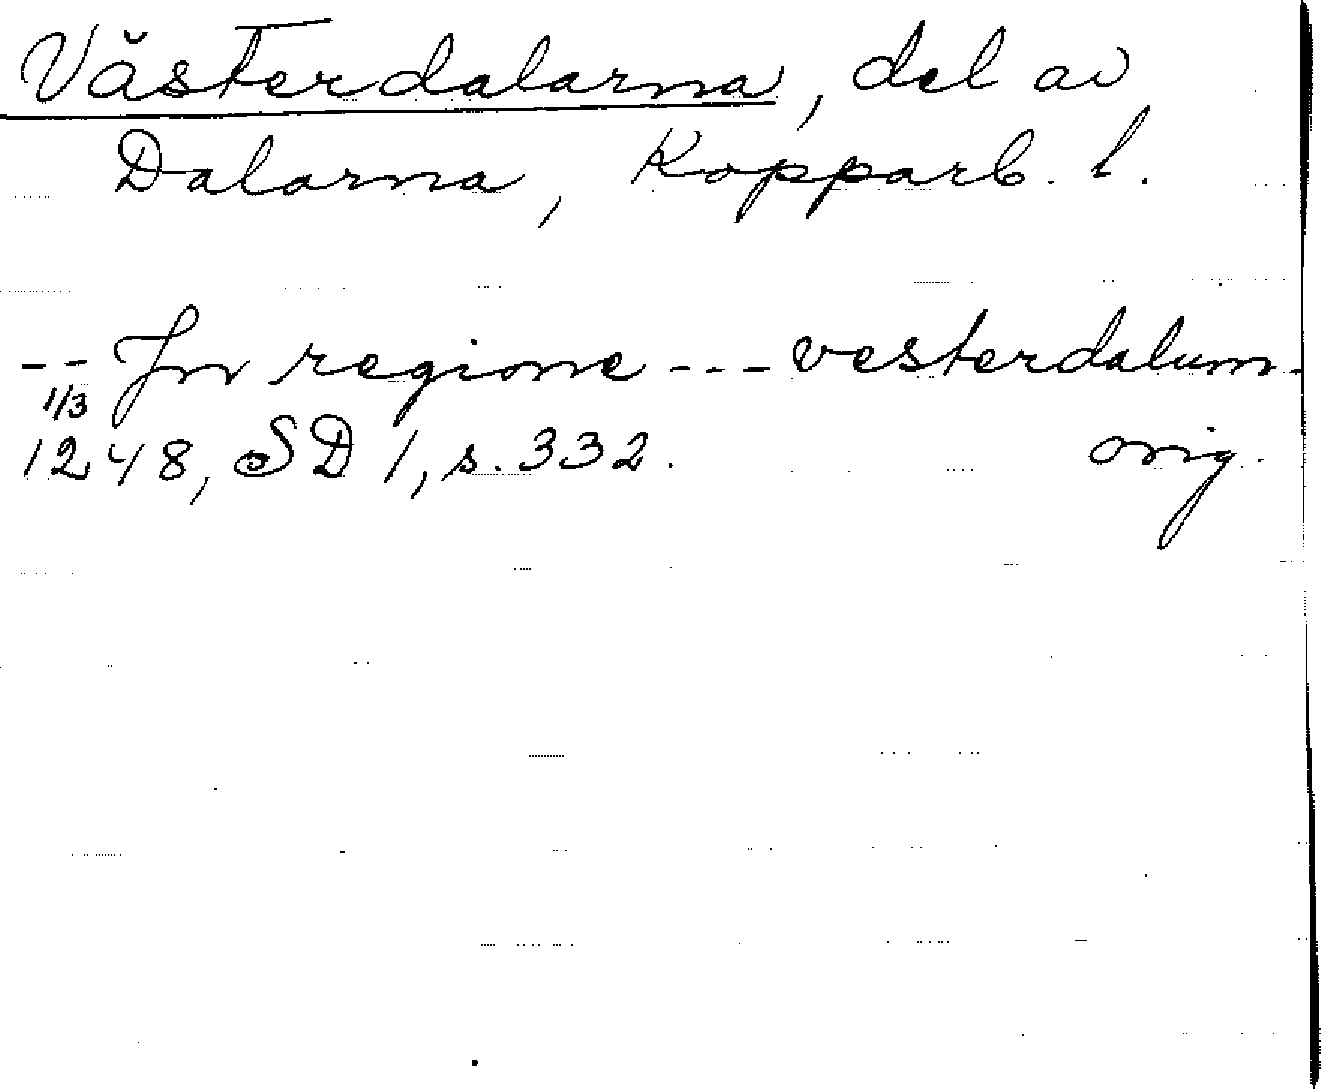 Västerdalarna, del av
Dalarna, Kopparb. l.
-- Jn regione --- vesterdalum.
1/3
1248, SD 1, s. 332. orig.